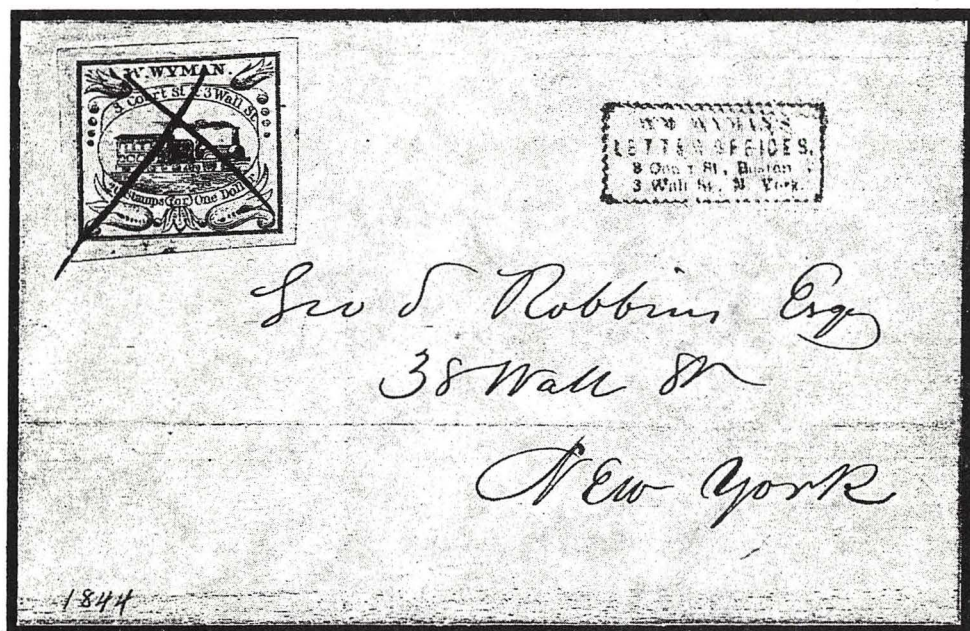 W. WYMAN.
8 Court St & 3 Wall St.
20 Stamps for One Dollar
WM WYMAN'S
LETTER OFFICES.
8 Court St, Boston
3 Wall St, N. York.
Geo S Robbins Esqr
38 Wall St
New York
1844